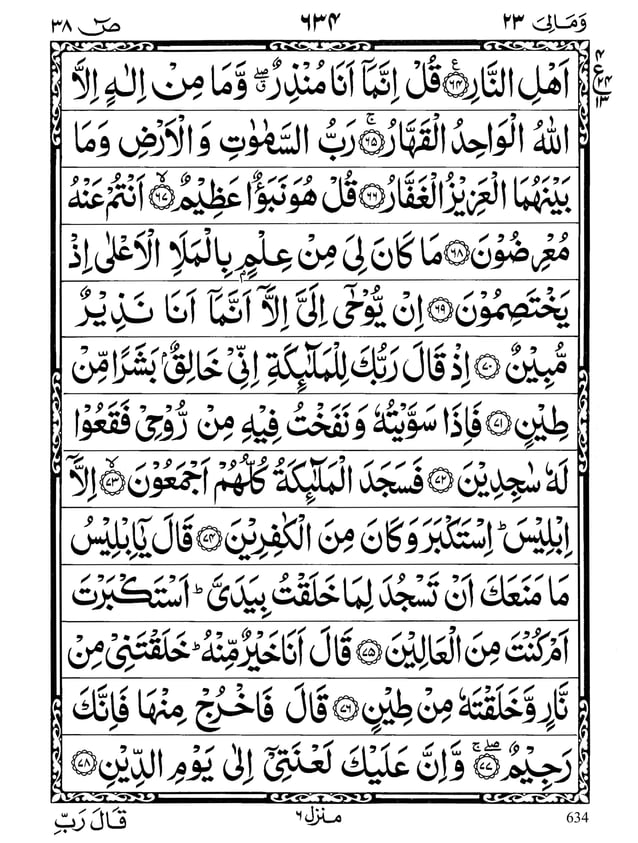 وَمَالِیَ ٢٣
٦٣٤
صٓ ٣٨
٤
ع
٢٤
١٣
اَهْلِ النَّارِ ﴿٦٤﴾ ع قُلْ اِنَّمَاۤ اَنَا مُنْذِرٌ ۖۗ وَّمَا مِنْ اِلٰهٍ اِلَّا
اللهُ الْوَاحِدُ الْقَهَّارُ ﴿٦٥﴾ ۚ رَبُّ السَّمٰوٰتِ وَالْاَرْضِ وَمَا
بَيْنَهُمَا الْعَزِيْزُ الْغَفَّارُ ﴿٦٦﴾ قُلْ هُوَ نَبَؤٌا عَظِيْمٌ ﴿٦٧﴾ ۙ اَنْتُمْ عَنْهُ
مُعْرِضُوْنَ ﴿٦٨﴾ مَا كَانَ لِیَ مِنْ عِلْمٍۭ بِالْمَلَاِ الْاَعْلٰۤی اِذْ
يَخْتَصِمُوْنَ ﴿٦٩﴾ اِنْ يُّوْحٰۤی اِلَیَّ اِلَّاۤ اَنَّمَاۤ اَنَا نَذِيْرٌ
مُّبِيْنٌ ﴿٧٠﴾ اِذْ قَالَ رَبُّكَ لِلْمَلٰٓئِكَةِ اِنِّیْ خَالِقٌۢ بَشَرًا مِّنْ
طِيْنٍ ﴿٧١﴾ فَاِذَا سَوَّيْتُهٗ وَنَفَخْتُ فِيْهِ مِنْ رُّوْحِیْ فَقَعُوْا
لَهٗ سٰجِدِيْنَ ﴿٧٢﴾ فَسَجَدَ الْمَلٰٓئِكَةُ كُلُّهُمْ اَجْمَعُوْنَ ﴿٧٣﴾ ۙ اِلَّاۤ
اِبْلِيْسَ ؕ اِسْتَكْبَرَ وَكَانَ مِنَ الْكٰفِرِيْنَ ﴿٧٤﴾ قَالَ يٰۤاِبْلِيْسُ
مَا مَنَعَكَ اَنْ تَسْجُدَ لِمَا خَلَقْتُ بِيَدَیَّ ؕ اَسْتَكْبَرْتَ
اَمْ كُنْتَ مِنَ الْعَالِيْنَ ﴿٧٥﴾ قَالَ اَنَا خَيْرٌ مِّنْهُ ؕ خَلَقْتَنِیْ مِنْ
نَّارٍ وَّخَلَقْتَهٗ مِنْ طِيْنٍ ﴿٧٦﴾ قَالَ فَاخْرُجْ مِنْهَا فَاِنَّكَ
رَجِيْمٌ ﴿٧٧﴾ ۖۚ وَّاِنَّ عَلَيْكَ لَعْنَتِیْۤ اِلٰی يَوْمِ الدِّيْنِ ﴿٧٨﴾
634
منزل ٦
قَالَ رَبِّ